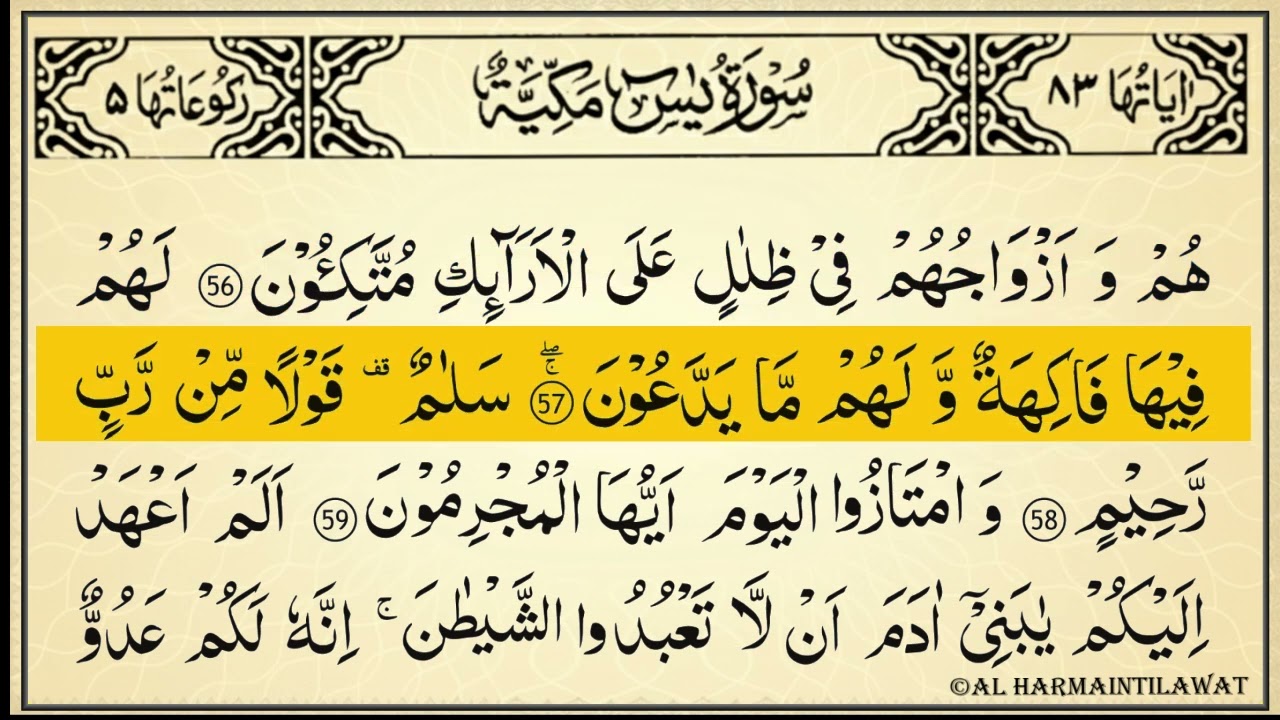 اٰيَاتُهَا ٨٣ سُوْرَةُ يٰسٓ مَكِّيَّةٌ رُكُوْعَاتُهَا ۵
هُمْ وَ اَزْوَاجُهُمْ فِیْ ظِلٰلٍ عَلَی الْاَرَآىِٕكِ مُتَّكِـُٔوْنَ 56 لَهُمْ
فِیْهَا فَاكِهَةٌ وَّ لَهُمْ مَّا یَدَّعُوْنَ 57 ۚۖ سَلٰمٌ ۫ قَوْلًا مِّنْ رَّبٍّ
رَّحِیْمٍ 58 وَ امْتَازُوا الْیَوْمَ اَیُّهَا الْمُجْرِمُوْنَ 59 اَلَمْ اَعْهَدْ
اِلَیْكُمْ یٰبَنِیْۤ اٰدَمَ اَنْ لَّا تَعْبُدُوا الشَّیْطٰنَ ۚ اِنَّهٗ لَكُمْ عَدُوٌّ
©AL HARMAINTILAWAT